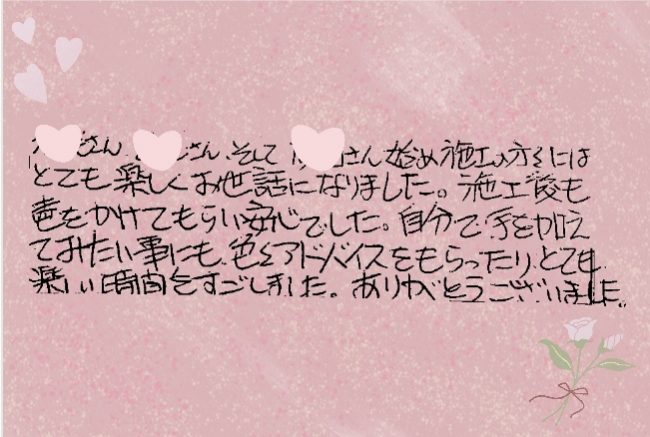 さん さん、そして さん始め施工の方々には
とても楽しくお世話になりました。施工後も
声をかけてもらい安心でした。自分で手を加え
てみたい事にも、色々アドバイスをもらったり、とても
楽しい時間をすごしました。ありがとうございました。